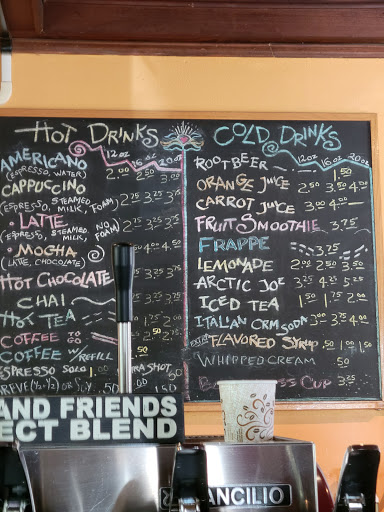 HOT DRINKS
12oz 16oz 20oz
AMERICANO
(ESPRESSO, WATER) 2.00 2.50 3.50
CAPPUCCINO
(ESPRESSO, STEAMED MILK, FOAM) 2.75 3.25 3.75
LATTE
(ESPRESSO, STEAMED MILK, NO FOAM) 2.75 3.25 3.75
MOCHA
(LATTE, CHOCOLATE) .50 4.00 4.50
HOT CHOCOLATE .75 3.25 3.75
CHAI
HOT TEA
COFFEE TO GO
COFFEE W/REFILL .50
ESPRESSO SOLO 1.00
.50
COLD DRINKS
12oz 16oz 20oz
ROOTBEER 1.50
ORANGE JUICE 2.50 3.50 4.00
CARROT JUICE 3.00 4.00
FRUIT SMOOTHIE 3.75
FRAPPE 3.75
LEMONADE 2.00 2.50 3.50
ARCTIC JOE 3.25 4.25 5.25
ICED TEA 1.50 1.75 2.00
ITALIAN CRM SODA 3.00 3.75 4.00
FLAVORED SYRUP .50 1.00 1.50
WHIPPED CREAM .50
CUP 3.25
AND FRIENDS
ECT BLEND
ANCILIO